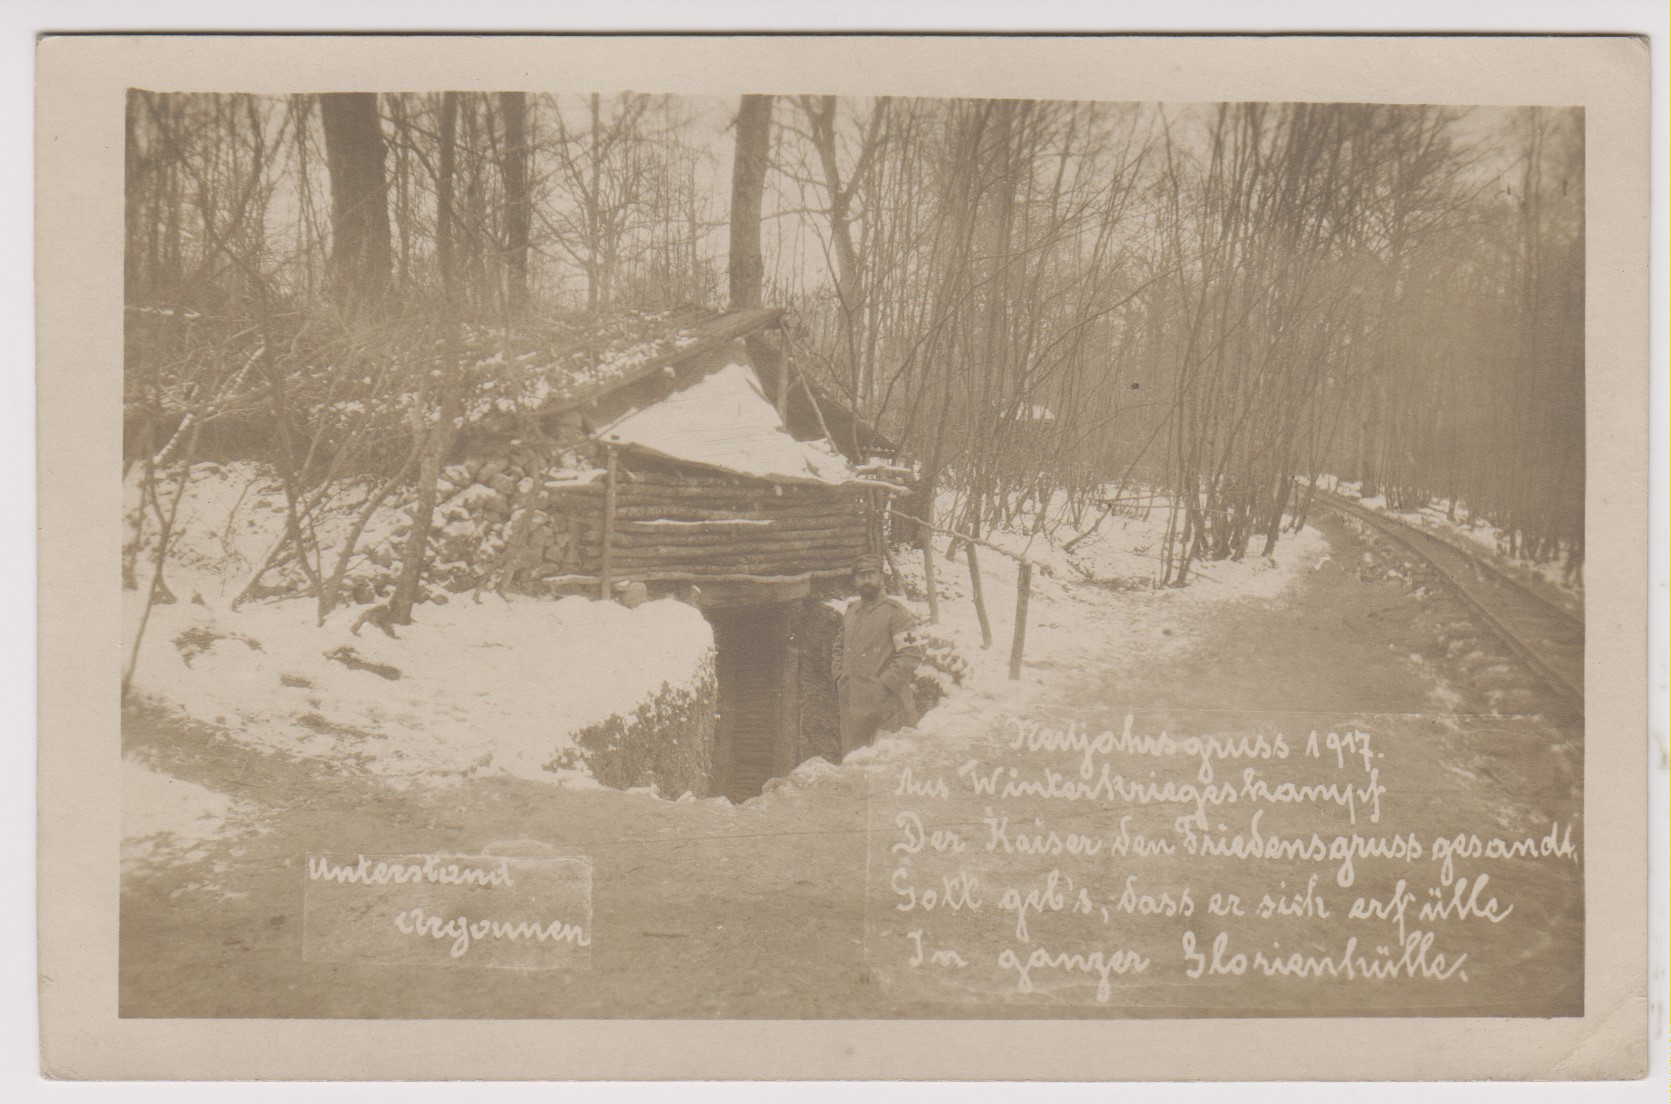 Neujahrsgruss 1917.
Aus Winterkriegeskampf
Der Kaiser den Friedensgruss gesandt,
Gott geb's, dass er sich erfülle
In ganzer Glorienhülle.
Unterstand
Argonnen